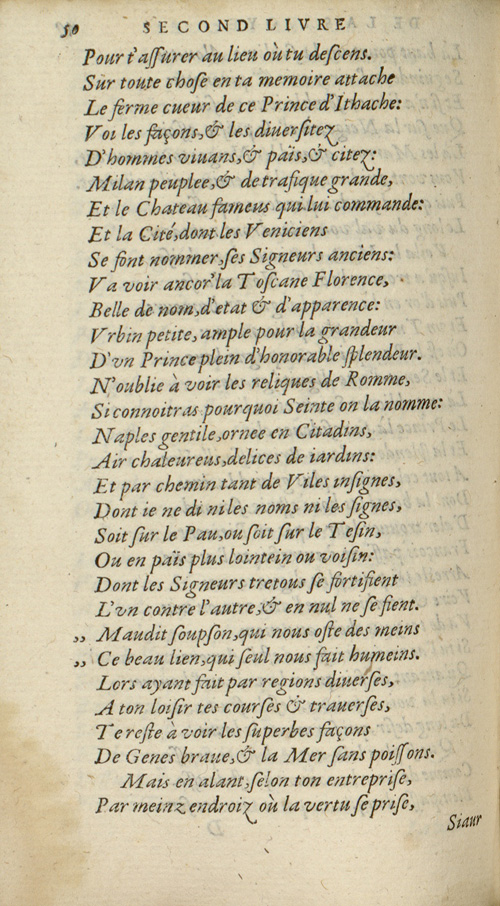 50 SECOND LIVRE
Pour t'aſſurer au lieu où tu deſcens.
Sur toute choſe en ta memoire attache
Le ferme cueur de ce Prince d'Ithache:
Voi les façons,& les diuerſitez
D'hommes viuans,& païs,& citez:
Milan peuplee,& de trafique grande,
Et le Chateau fameus qui lui commande:
Et la Cité,dont les Veniciens
Se font nommer,ſes Signeurs anciens:
Va voir ancor'la Toſcane Florence,
Belle de nom,d'etat & d'apparence:
Vrbin petite, ample pour la grandeur
D'vn Prince plein d'honorable ſplendeur.
N'oublie à voir les reliques de Romme,
Si connoitras pourquoi Seinte on la nomme:
Naples gentile,ornee en Citadins,
Air chaleureus,delices de iardins:
Et par chemin tant de Viles inſignes,
Dont ie ne di ni les noms ni les ſignes,
Soit ſur le Pau,ou ſoit ſur le Teſin,
Ou en païs plus lointein ou voiſin:
Dont les Signeurs tretous ſe fortifient
L'vn contre l'autre,& en nul ne ſe fient.
„ Maudit ſoupſon,qui nous oſte des meins
„ Ce beau lien,qui ſeul nous fait humeins.
Lors ayant fait par regions diuerſes,
A ton loiſir tes courſes & trauerſes,
Te reſte à voir les ſuperbes façons
De Genes braue,& la Mer ſans poiſſons.
Mais en alant,ſelon ton entrepriſe,
Par meinz endroiz où la vertu ſe priſe,
Siaur